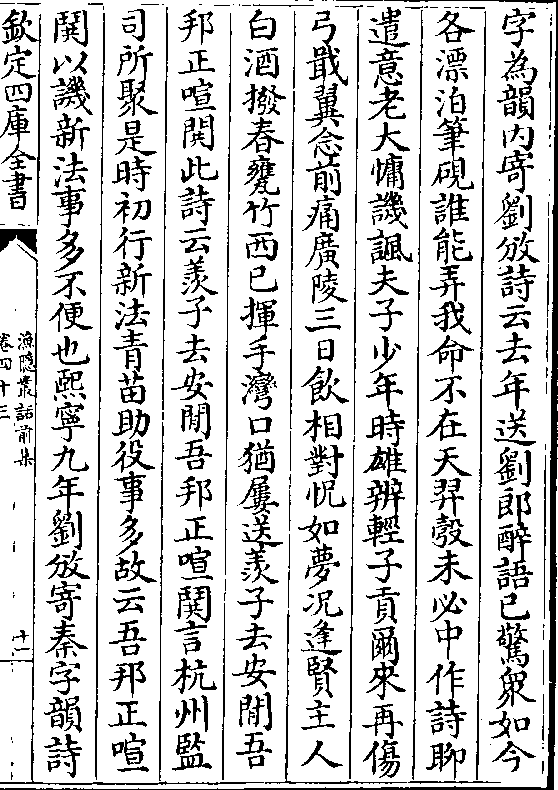 字為韻内寄劉攽詩云去年送劉郎醉語已驚衆如今
各漂泊筆硯誰能弄我命不在天羿彀未必中作詩聊
遣意老大慵譏諷夫子少年時雄辨輕子貢爾來再傷
弓戢翼念前痛廣陵三日飲相對怳如夢况逢賢主人
白酒撥春甕竹西已揮手灣口猶屢送羨子去安閒吾
邦正喧鬨此詩云羨子去安閒吾邦正喧鬨言杭州監
司所聚是時初行新法青苗助役事多故云吾邦正喧
鬨以譏新法事多不便也熙寧九年劉攽寄秦字韻詩
欽定四庫全書
漁隱叢話前集
卷四十三
十一